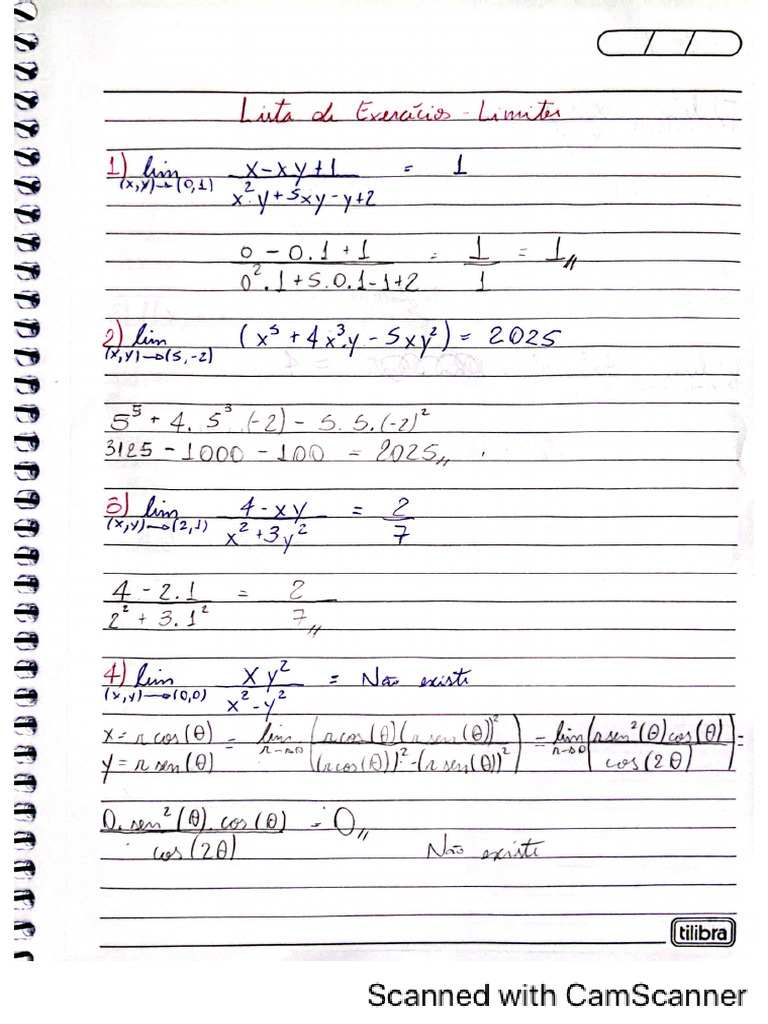 Lista de Exercícios - Limites
1) lim (x,y)→(0,1) x-xy+1 / x²y+5xy-y+2 = 1
0 - 0.1 + 1 / 0².1+5.0.1-1+2 = 1/1 = 1//
2) lim (x,y)→(5,-2) (x⁵ + 4x³.y - 5xy²) = 2025
5⁵ + 4. 5³.(-2) - 5.5.(-2)²
3125 - 1000 - 100 = 2025//
3) lim (x,y)→(2,1) 4-xy / x²+3y² = 2/7
4 - 2.1 / 2² + 3.1² = 2/7//
4) lim (x,y)→(0,0) xy² / x²-y² = Não existe
x = r cos(θ) = lim r→0 (r cos(θ)(r sen(θ))² / (r cos(θ))²-(r sen(θ))²) = lim r→0 (r sen²(θ)cos(θ) / cos(2θ)) =
y = r sen(θ)
0. sen²(θ). cos(θ) / cos(2θ) = 0//
Não existe
tilibra
Scanned with CamScanner